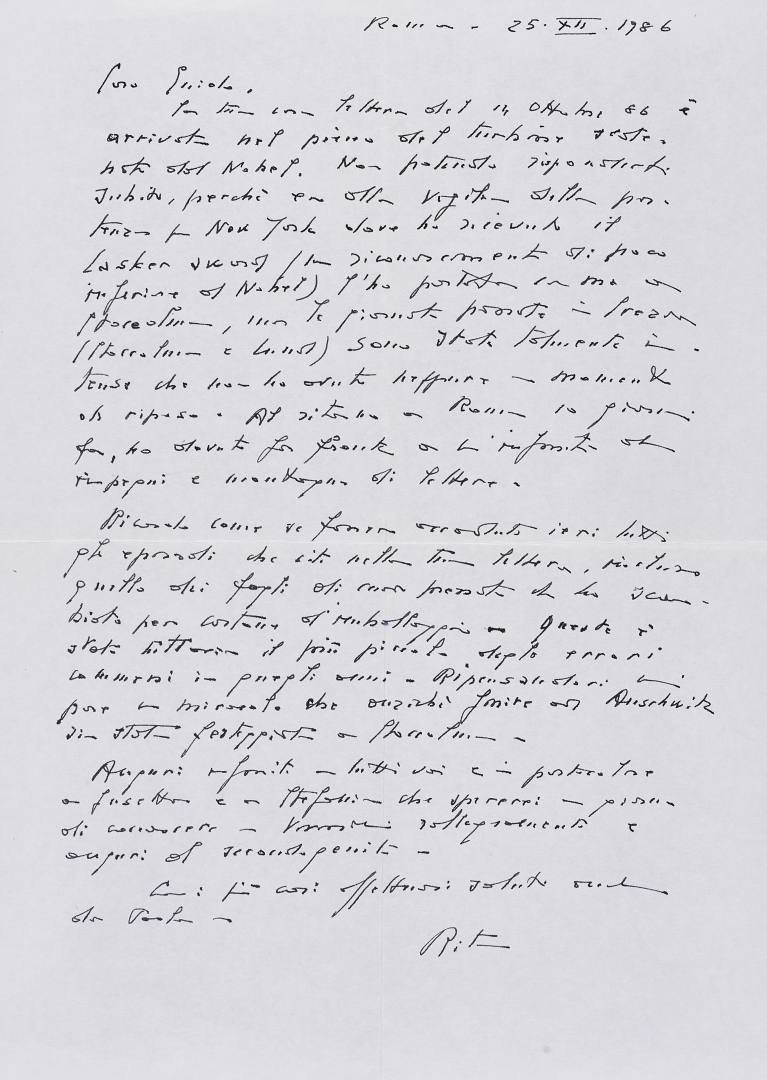 Roma - 25.XII.1986
Caro Guido,
La tua cara lettera del 14 Ottobre 86 è
arrivata nel pieno del turbine scate-
nato dal Nobel. Non potendo risponderti
subito, perchè ero alla vigilia della par-
tenza per New York dove ho ricevuto il
Lasker award (un riconoscimento di poco
inferiore al Nobel) l'ho portata con me a
Stoccolma, ma le giornate passate in Svezia
(Stoccolma e Lund) sono state talmente in-
tense che non ho avuto neppure un momento
di riposo. Al ritorno a Roma 10 giorni
fa, ho dovuto far fronte a un'infinità di
impegni e montagna di lettere.
Ricordo come se fossero accaduti ieri tutti
gli episodi che citi nella tua lettera, incluso
quello dei fogli di carta pressata che ho scam-
biato per cartone d'imballaggio. Questo è
stato tuttavia il più piccolo degli errori
commessi in quegli anni. Ripensandoci mi
pare un miracolo che anzichè finire ad Auschwitz
sia stata festeggiata a Stoccolma.
Auguri infiniti a tutti voi e in particolare
a e a Stefania che spererei un giorno
di conoscere - Vivissimi rallegramenti e
auguri al secondogenito -
Con i più cari affettuosi saluti anche
da Paola -
Rita